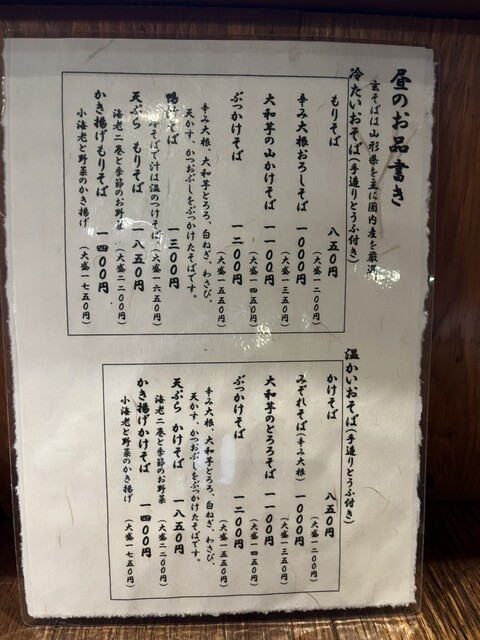 昼のお品書き
玄そばは山形県を主に国内産を厳選
冷たいおそば(手造りとうふ付き)
もりそば 八五〇円
(大盛一二〇〇円)
辛み大根おろしそば 一〇〇〇円
(大盛一三五〇円)
大和芋の山かけそば 一一〇〇円
(大盛一四五〇円)
ぶっかけそば 一二〇〇円
(大盛一五五〇円)
辛み大根、大和芋とろろ、白ねぎ、わさび、
天かす、かつおぶしをぶっかけたそばです。
鴨汁そば 一三〇〇円
そばで汁は温のつけそば(大盛一六五〇円)
天ぷら もりそば 一八五〇円
海老二巻と季節のお野菜 (大盛二二〇〇円)
かき揚げもりそば 一四〇〇円
小海老と野菜のかき揚げ (大盛一七五〇円)
温かいおそば(手造りとうふ付き)
かけそば 八五〇円
(大盛一二〇〇円)
みぞれそば(辛み大根) 一〇〇〇円
(大盛一三五〇円)
大和芋のとろろそば 一一〇〇円
(大盛一四五〇円)
ぶっかけそば 一二〇〇円
(大盛一五五〇円)
辛み大根、大和芋とろろ、白ねぎ、わさび、
天かす、かつおぶしをぶっかけたそばです。
天ぷら かけそば 一八五〇円
海老二巻と季節のお野菜 (大盛二二〇〇円)
かき揚げかけそば 一四〇〇円
小海老と野菜のかき揚げ (大盛一七五〇円)